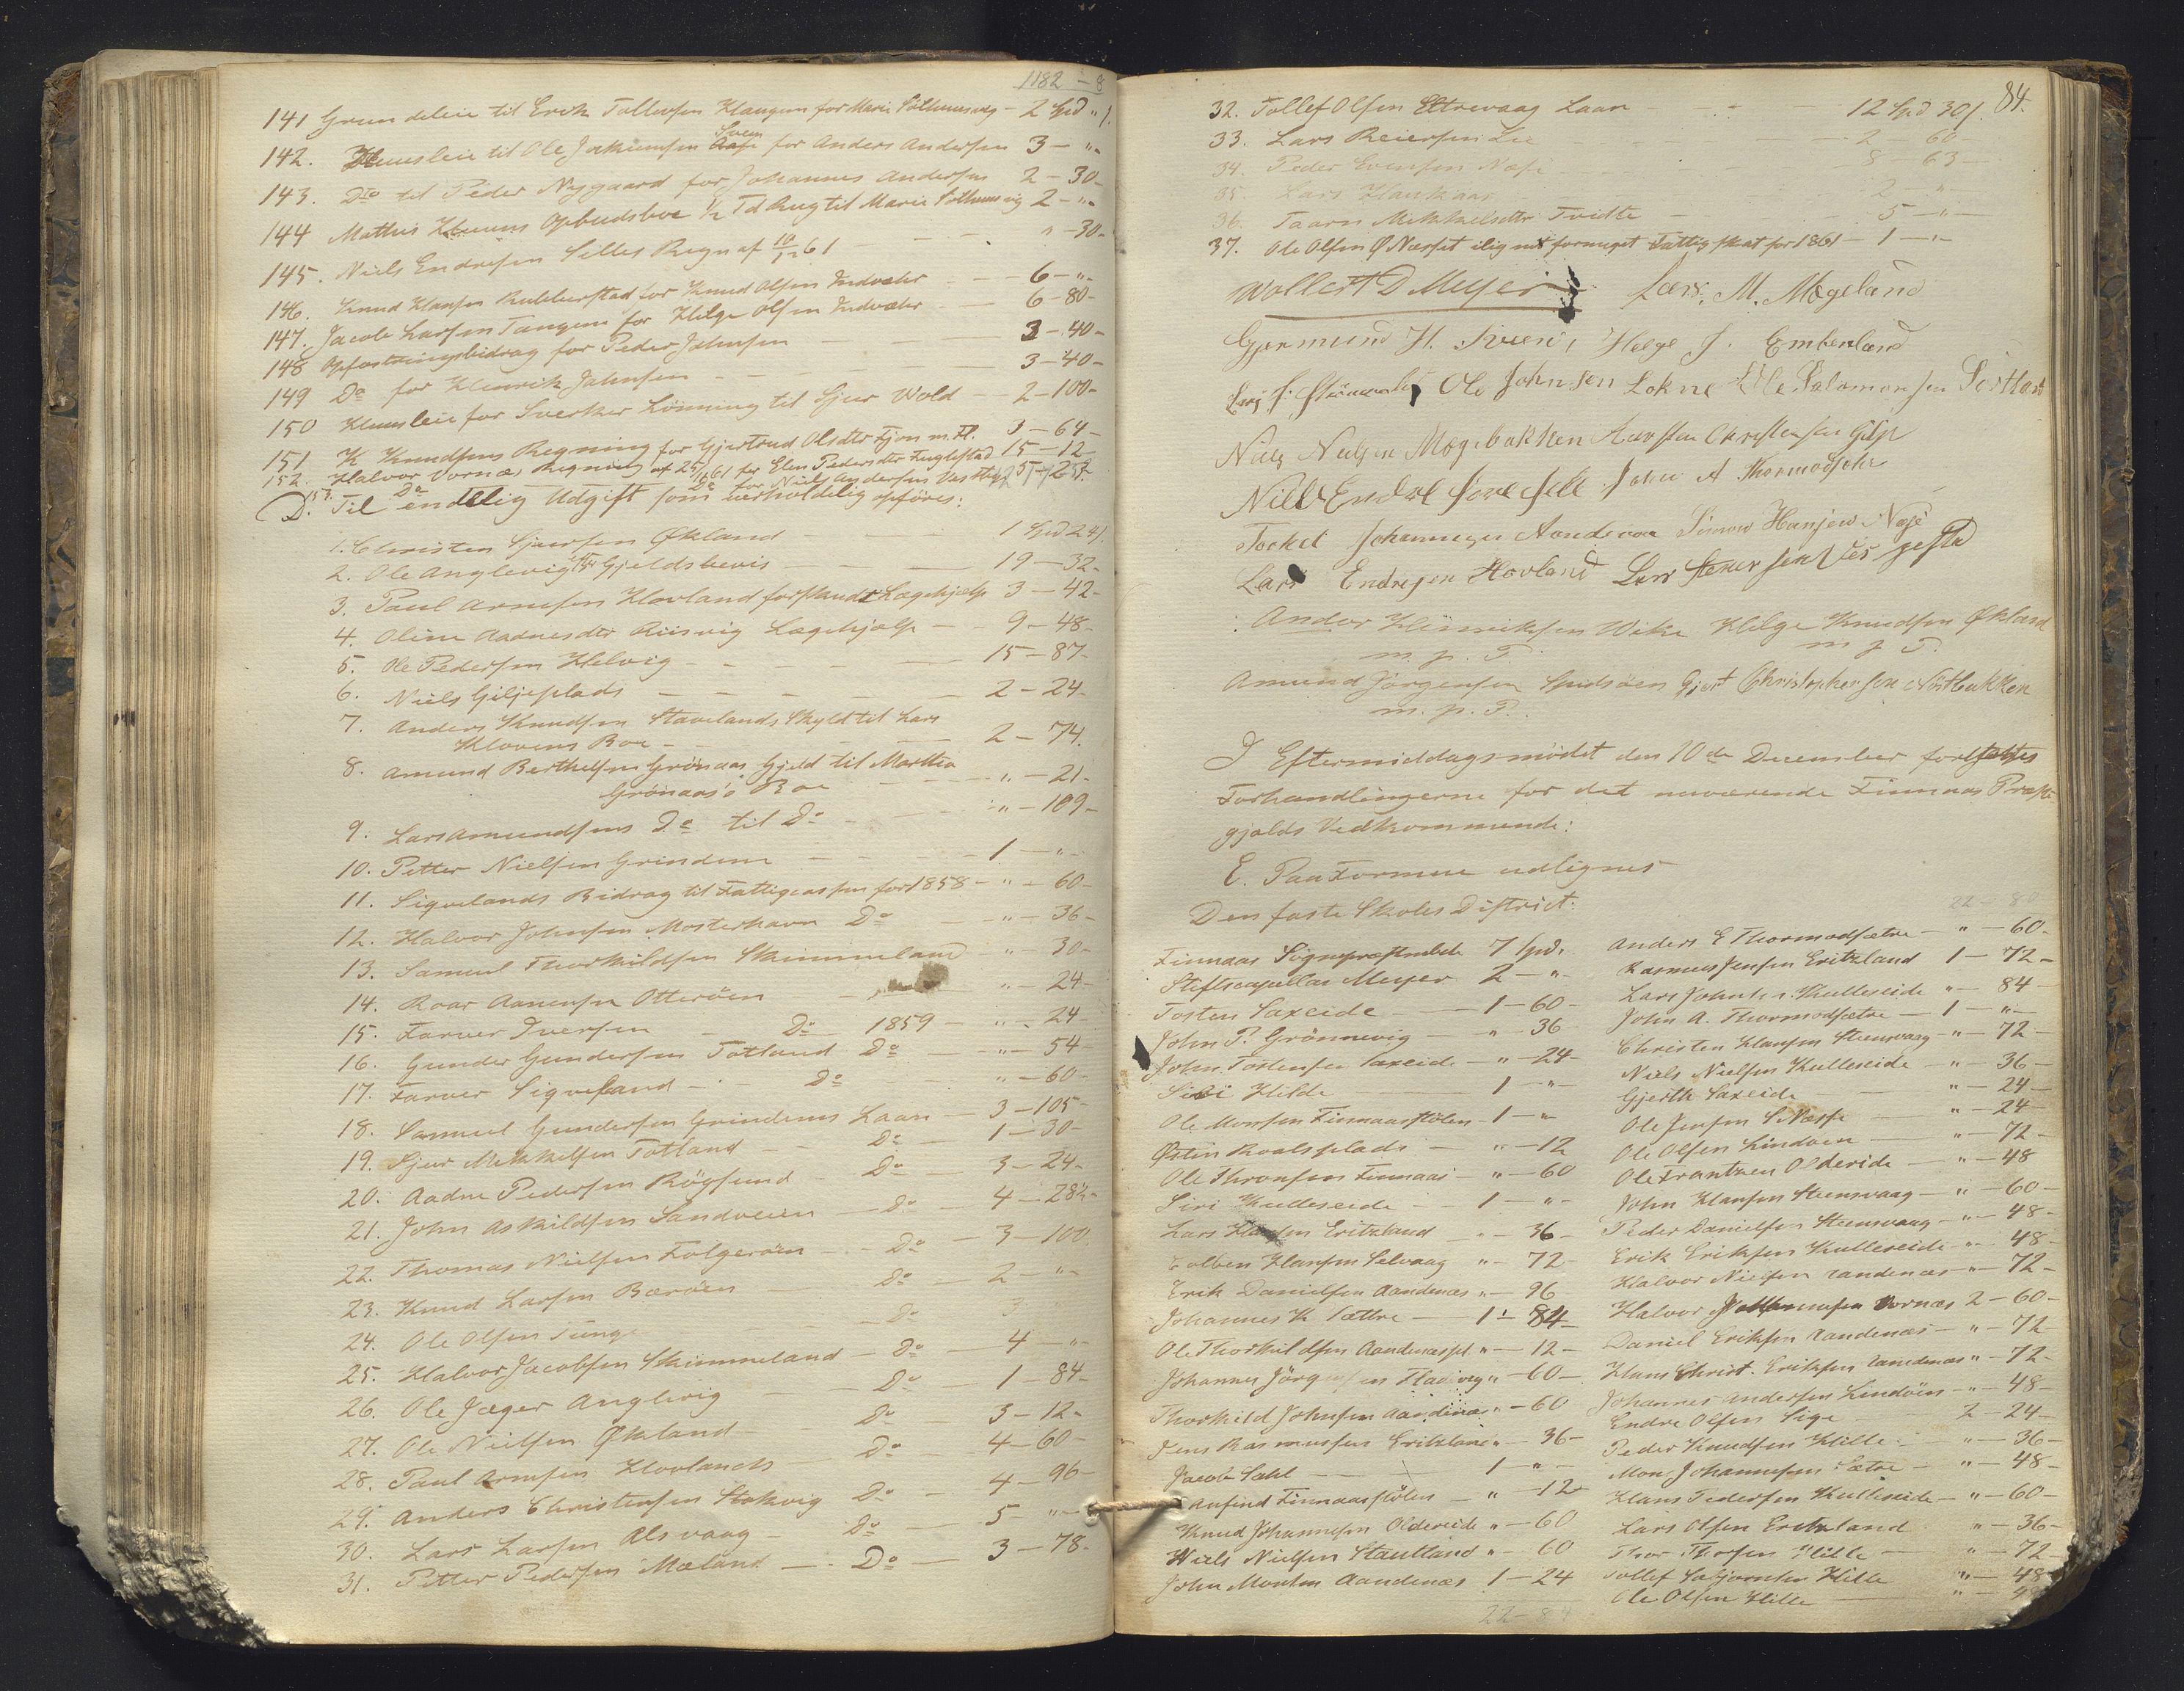 1182 - 8
141 Grundleie til Erik Tollevsen Haugen for Marie Sølhuusvig - 2 Spd " /.
142. Huusleie til Ole Joakimsen Svem for Anders Andersen 3 - "-
143. Dto til Peder Nygaard for Johannes Andersen 2 - 30-
144 Mathis Opbudsboe 1/2 Td Rug til Marie 2 - "-
145. Niels Endresen Silles Regn af 10/12 61 - - - " - 30-
146. Knud Hansen Rubberstad for Knud Olsen Indvær - - 6 - "-
147. Jacob Larsen Tangene for Helge Olsen Indvær - 6 - 80-
148 Opfostringsbidrag for Peder Johnsen - - - 3 - 40-
149 Do for Henrik Johnsen - - - 3 - 40-
150 Huusleie for Sverker Lønning til Sjur Wold - 2 - 100-
151 K Knudsens Regning for Gjertrud Olsdtr Fjon m. Fl. 3 - 64-
152. Halvor Vornæs Regning af 25/ 61 for Elen Pedersdtr Fuglestad 15 - 12-
153. Do Do for Niels Andersen
D. Til endelig Udgift som uerholdelig opføres:
1. Christen Sjursen Økland - - - 1 Spd 24/.
2. Ole Anglevig Gjeldsbevis - - - 19 - 32-
3. Paul Arnesen Hovland forskudt Lægehjælp 3 - 42-
4. Oline Aadnesdtr Riisvig Lægehjælp - - 9 - 48-
5. Ole Pedersen Helvig - - - 15 - 87-
6. Niels Giljeplads - - - 2 - 24-
7. Anders Knudsen Stavelands Skyld til Lars
Hovens Boe - - - 2 - 74.
8. Amund Berthelsen Grønaas Gjeld til Martha
Grønaas's Boe - - " - 21-
9. Lars Amundsens Do til Do - - " - 109-
10. Petter Nielsen Grindem - - - 1 - "-
11. Siqvelands Bidrag til Fattigcassen for 1858 - " - 60-
12. Halvor Johnsen Mosterhavn Do - - " - 36-
13. Samuel Thorkildsen Skimmeland - " - 30-
14. Roar Aanensen Otterøen - - " - 24-
15. Farver Iversen - Do - 1859 - " - 24-
16. Gunder Gundersen Totland Do - " - 54-
17. Farver Siqveland - - Do " - 60-
18. Samuel Gundersen Grindems Laan - 3 - 105-
19. Sjur Mikkelsen Totland - Do - 1 - 30-
20. Aadne Pedersen Røgsund - Do - 3 - 24-
21. John Askildsen Sandveien - Do - 4 - 28 1/2-
22. Thomas Nielsen Folgerøen - Do - 3 - 100
23. Knud Larsen Barøen - Do - 2 - "-
24. Ole Olsen Tunge Do - 3 "
25. Halvor Jacobsen Skimmeland - Do - 4 - "-
26. Ole Jæger Anglevig - Do - 1 - 84-
27. Ole Nielsen Økland - Do - 3 - 12-
28. Paul Arnesen Hovlands Do - 4 - 60-
29. Anders Christensen Stokvig Do - 4 - 96-
30. Lars Larsen Alsvaag - Do - 5 - "-
31. Petter Pedersen Mæland - Do - 3 - 78-
84.
32. Tollef Olsen Eltrevaag Laan - - - 12 Spd 30/.
33. Lars Reiersen Lie - - - 2 - 60-
34. Peder Evensen Næse - - - 8 - 63-
35. Lars Haukaas - - - 2 - "-
36. Taarn Mikkelsdtr Tvidte - - - 5 - "-
37. Ole Olsen Ø Næsset ilignet formeget Fattigskat for 1861 - 1 - "-
Wollert D Meyer Lars. M. Møgeland
Gjermund H. Hveen, Helge J. Emberland
Ole Johnsen Lokne Ole Salomonsen Sortland
Niels Nielsen Møgebakken Aarsten Christensen Gilje
Niels Endresen Selle John A Thormodsæter
Torkel Johannesen Aanderaa Simon Hansen Næse
Lars Endresen Hovland Lars
Anders Henriksen Wike Helge Knudsen Økland
m. p. P. m. p. P.
Amund Jørgensen Spidsøen Gjert Christophersen Nøstbakken
m. p. P.
I Eftermiddagsmødet den 10de December fortsattes
Forhandlingerne for det nuværende Finnaas Præste-
gjelds Vedkommende:
E. Paa Formue udlignes
Den faste Skoles District:
Finnaas Sognepræstembede 7 Spd.
Stiftscapellan Meyer 2 - "-
Tosten Saxeide - - 1 - 60-
John P. Grønnevig - " 36
John Tostensen Saxeide - " - 24-
Siri Hilde - - 1 - "-
Ole Monsen Finnaasstølen - 1 - "
Østen Roalsplads - " - 12
Ole Thronsen Finnaas - " - 60
Siri Kulleseide - - 1 - "-
Lars Hansen Eritzland - - 36-
Colben Hansen Selvaag " - 72-
Erik Danielsen Aandenæs " - 96
Johannes K Sættre - 1 - 84-
Ole Thorkildsen Aandenæspl. " - 12-
Johannes Jørgensen Hadevig " - 60-
Thorkild Johnsen Aandenæs " - 60
Jens Rasmussen Eritzland " - 36-
Jacob Sæhl - - 1 - "-
Arnfind Finnaasstølen - " - 12
Knud Johannesen Oldereide " - 60
Niels Nielsen Stautland " - 60
John Monsen Aandenæs 1 - 24
22 - 84
22 - 84
Anders E Thormodsætre - " - 60-
Rasmus Jensen Eritzland 1 - 72-
Lars Johnsen Kulleseide " - 84-
John A. Thormodsætre - 1 - "-
Christen Hansen Steensvaag - " - 72-
Niels Nielsen Kulleseide - " - 36-
Gjerth Saxeide - " - 24-
Ole Jensen S Næsse " - 24-
Ole Olsen Lindøen - " - 72-
Ole Frantzen Oldereide - " - 48
John Hansen Steensvaag - " - 60-
Peder Danielsen Steensvaag - " - 48-
Erik Eriksen Kulleseide " - 48-
Halvor Nielsen Aandenæs - " - 72-
Halvor Vornæs 2 - 60-
Daniel Eriksen Aandenæs - " - 72-
Hans Christ. Eriksen Aandenæs " - 72-
Johannes Andersen Lindøen - " - 48-
Endre Olsen Sige 2 - 24-
Peder Knudsen Hille - " - 36-
Mons Johannesen Sætre - " - 48-
Hans Pedersen Kulleseide - " - 60-
Lars Olsen Eritzland " - 36-
Thor Thorsen Hille - " - 72-
Tollef Hille " - 48
Ole Olsen Hille - " - 48